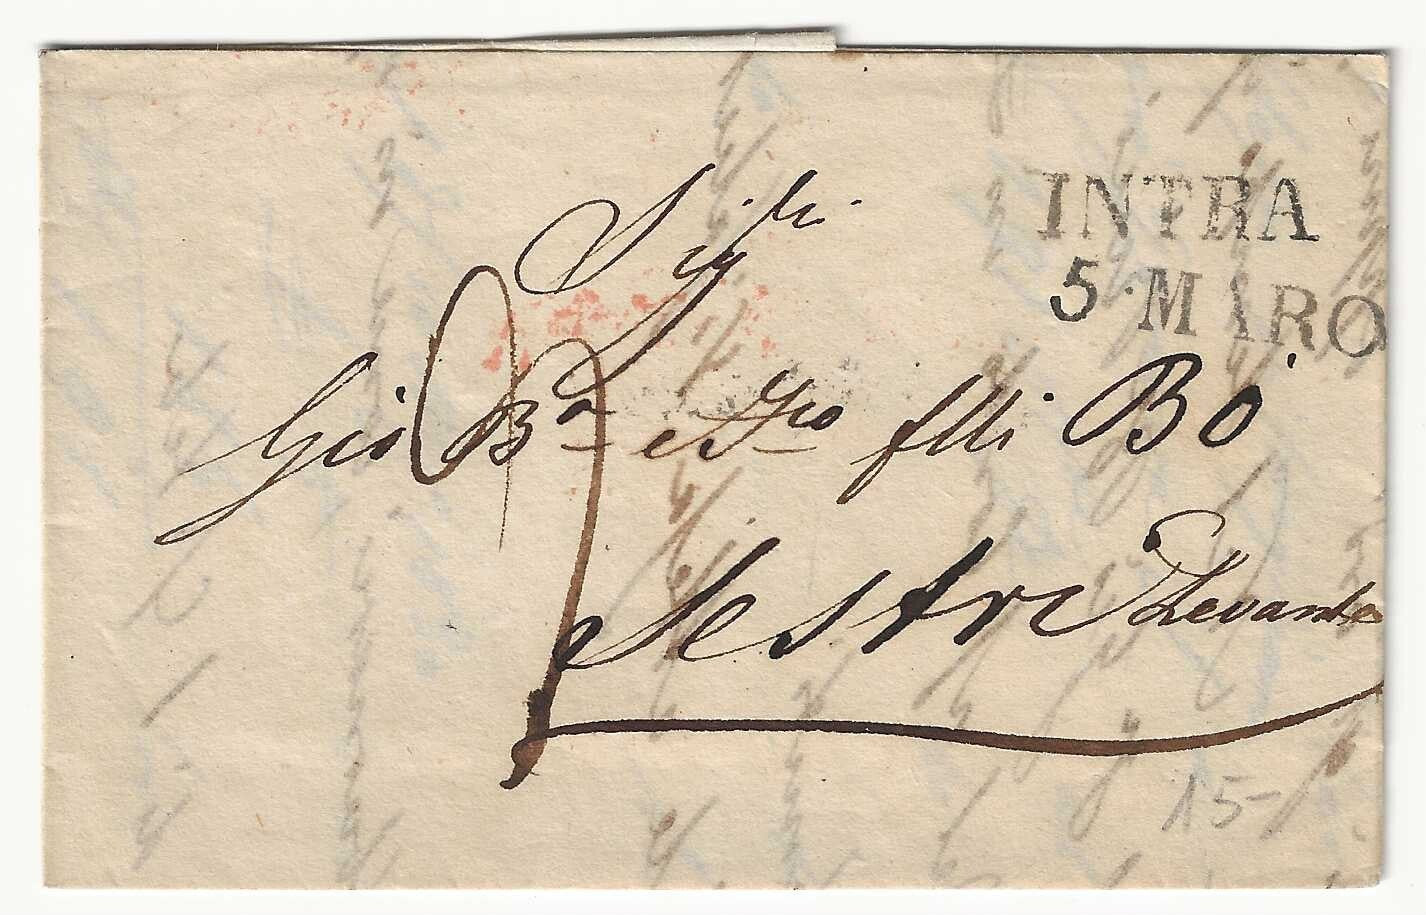 INTRA
5 · MARO
Sig.ri
Gio Bª e Fco flli Bó
Sestri Levante
15-